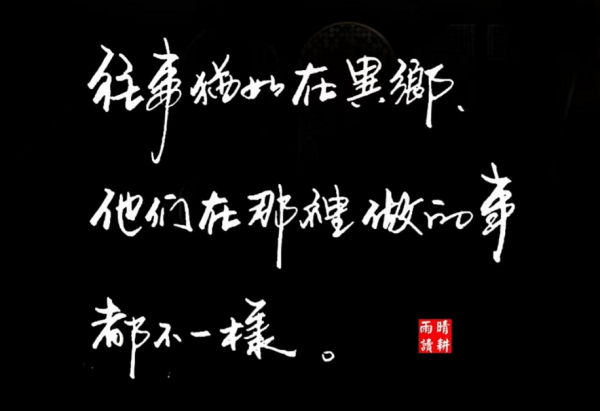 往事猶如在異鄉、
他们在那裡做的事
都不一樣。
晴耕
雨讀